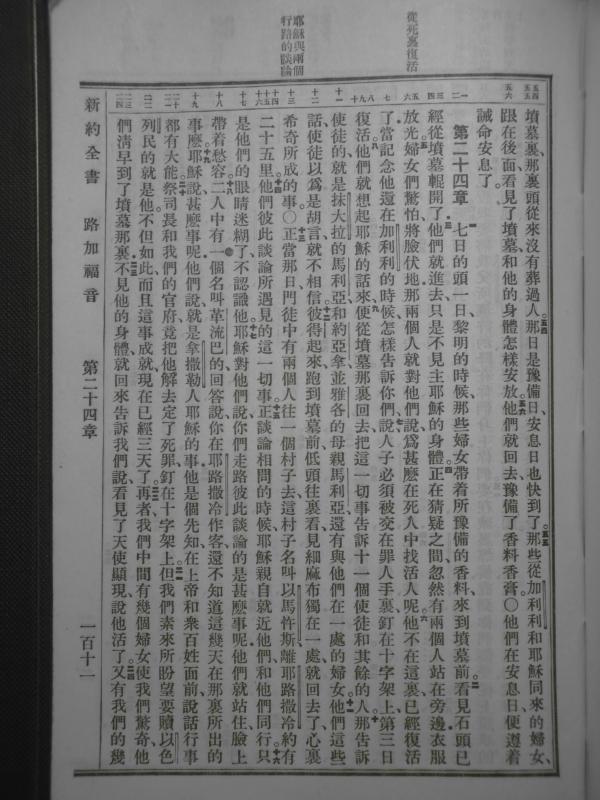 從死裏復活
耶穌與兩個
行路的談論
墳墓裏、那裏頭從來沒有葬過人、那日是豫備日、安息日也快到了、那些從加利利和耶穌同來的婦女、
跟在後面看見了墳墓和他的身體怎樣安放、他們就回去、豫備了香料香膏〇他們在安息日便遵着
誡命安息了
第二十四章 七日的頭一日黎明的時候、那些婦女帶着所豫備的香料來到墳墓前看見石頭已
經從墳墓輥開了他們就進去只是不見主耶穌的身體正在猜疑之間忽然有兩個人站在旁邊衣服
放光婦女們驚怕將臉伏地那兩個人就對他們說爲甚麼在死人中找活人呢他不在這裏已經復活
了當記念他還在加利利的時候怎樣告訴你們說人子必須被交在罪人手裏釘在十字架上第三日
復活他們就想起耶穌的話來便從墳墓那裏回去把這一切事告訴十一個使徒和其餘的人那告訴
使徒的就是抹大拉的馬利亞和約亞拿並雅各的母親馬利亞還有與他們在一處的婦女他們這些
話使徒以爲是胡言就不相信彼得起來跑到墳墓前低頭往裏看見細麻布獨在一處就回去了心裏
希奇所成的事〇正當那日門徒中有兩個人往一個村子去這村子名叫以馬忤斯離耶路撒冷約有
二十五里他們彼此談論所遇見的這一切事正談論相問的時候耶穌親自就近他們和他們同行只
是他們的眼睛迷糊了不認識他耶穌對他們說你們走路彼此談論的是甚麼事呢他們就站住臉上
帶着愁容二人中有一個名叫革流巴的回答說你在耶路撒冷作客還不知道這幾天在那裏所出的
事麼耶穌說甚麼事呢他們說就是拿撒勒人耶穌的事他是個先知在上帝和衆百姓面前說話行事
都有大能祭司長和我們的官府竟把他解去定了死罪釘在十字架上但我們素來所盼望要贖以色
列民的就是他不但如此而且這事成就現在已經三天了再者我們中間有幾個婦女使我們驚奇他
們淸早到了墳墓那裏不見他的身體就回來告訴我們說看見了天使顯現說他活了又有我們的幾
新約全書 路加福音 第二十四章 一百十一